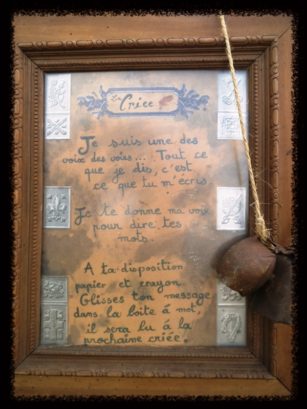 La Criée
Je suis une des
voix des voies... Tout ce
que je dis, c'est
ce que tu m'écris.
Je te donne ma voix
pour dire tes
mots.
A ta disposition
papier et crayon.
Glisses ton message
dans la boîte à mot,
il sera lu à la
prochaine criée.